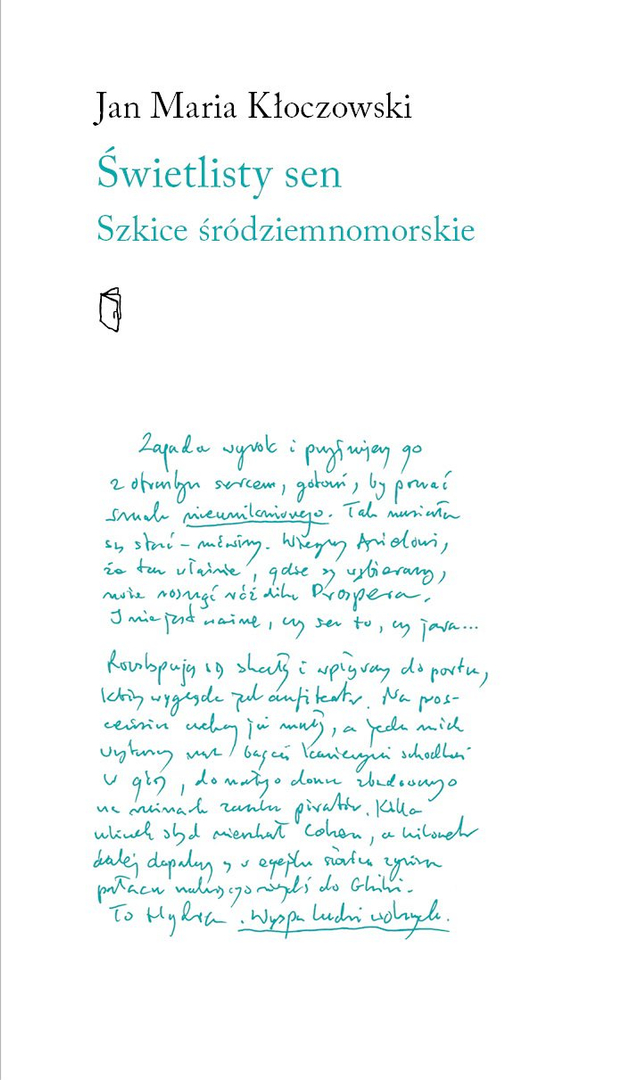 Jan Maria Kłoczowski
Świetlisty sen
Szkice śródziemnomorskie
Zapada wyrok i przyjmujemy go
z otwartym sercem, gotowi, by poznać
smak nieuniknionego. Tak musiało
się stać – mówimy. Wierzymy Arielowi,
że tu właśnie, gdzie się wybieramy,
może rosnąć różdżka Prospera.
I nie jest ważne, czy sen to, czy jawa...
Rozstępują się skały i wpływamy do portu,
który wygląda jak amfiteatr. Na pros-
cenium czekają już muły, a jeden z nich
wytrwały bagaż kamiennymi schodkami
w górę, do małego domu zbudowanego
na ruinach zamku piratów. Kilka
uliczek stąd mieszkał Cohen, a kilometr
dalej w
pałacu należącego do Ghiki.
To Hydra. Wyspa ludzi wolnych.